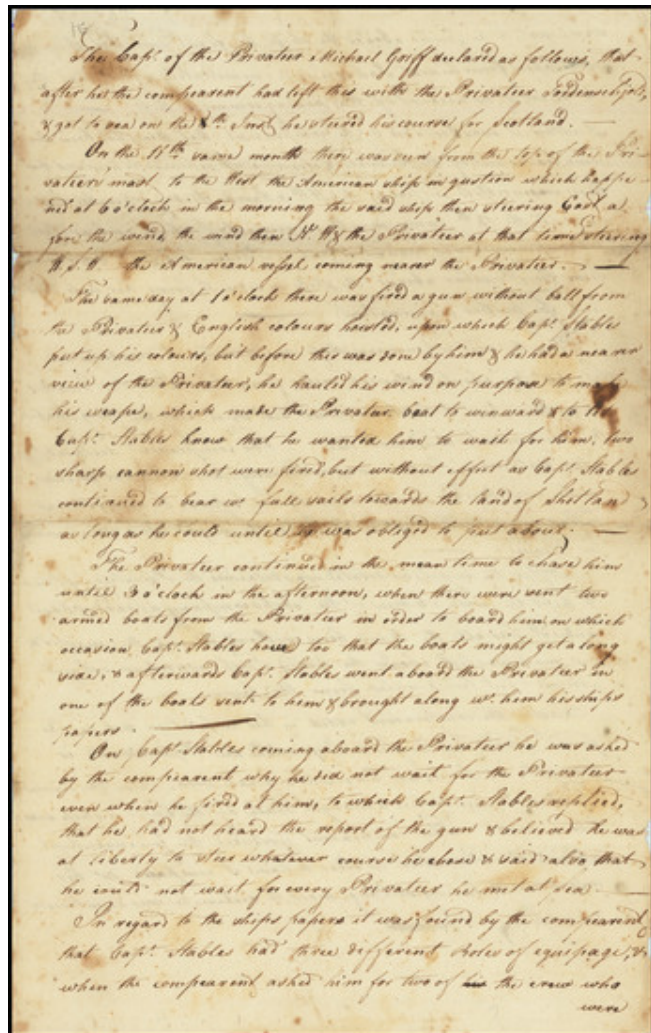 The Capt. of the Privateer Michael Griff declared as follows, that
after he the compearent had left this with the Privateer Tordenschjold,
& got to sea on the 8th Inst he steered his course for Scotland. —
On the 17th same month there was seen from the top of the Pri-
vateers mast to the West the American ship in qustion which happe
ned at 6 o'clock in the morning the said ship then steering East a
fore the wind, the wind then N. W & the Privateer at that time steering
W. S. W. the American vessel coming nearer the Privateer. —
The same day at 1 o'clock there was fired a gun without ball from
the Privateer & English colours housted, upon which Capt. Stables
put up his colours, but before this was done by him & he had a nearer
view of the Privateer, he hauled his wind on purpose to make
his escape, which made the Privateer beat to winward & to let
Capt. Stables know that he wanted him to wait for him, two
sharp cannon shot were fired, but without effect as Capt. Stables
continued to bear wt. full sails towards the land of Shetland
as long as he could until he was obliged to put about. —
The Privateer continued in the mean time to chase him
until 3 o'clock in the afternoon, when there were sent two
armed boats from the Privateer in order to board him on which
occasion Capt. Stables hove too that the boats might get along
side, & afterwards Capt. Stables went aboard the Privateer in
one of the boats sent to him & brought along wt. him his ships
papers.
On Capt. Stables coming aboard the Privateer he was asked
by the compearent why he did not wait for the Privateer
even when he fired at him, to which Capt. Stables replied,
that he had not heard the report of the gun & believed he was
at liberty to steer whatever course he chose & said also that
he could not wait for every Privateer he met at sea —
In regard to the ships papers it was found by the compearent
that Capt. Stables had three different Roles of equipage, &
when the compearent asked him for two of the crew who
were